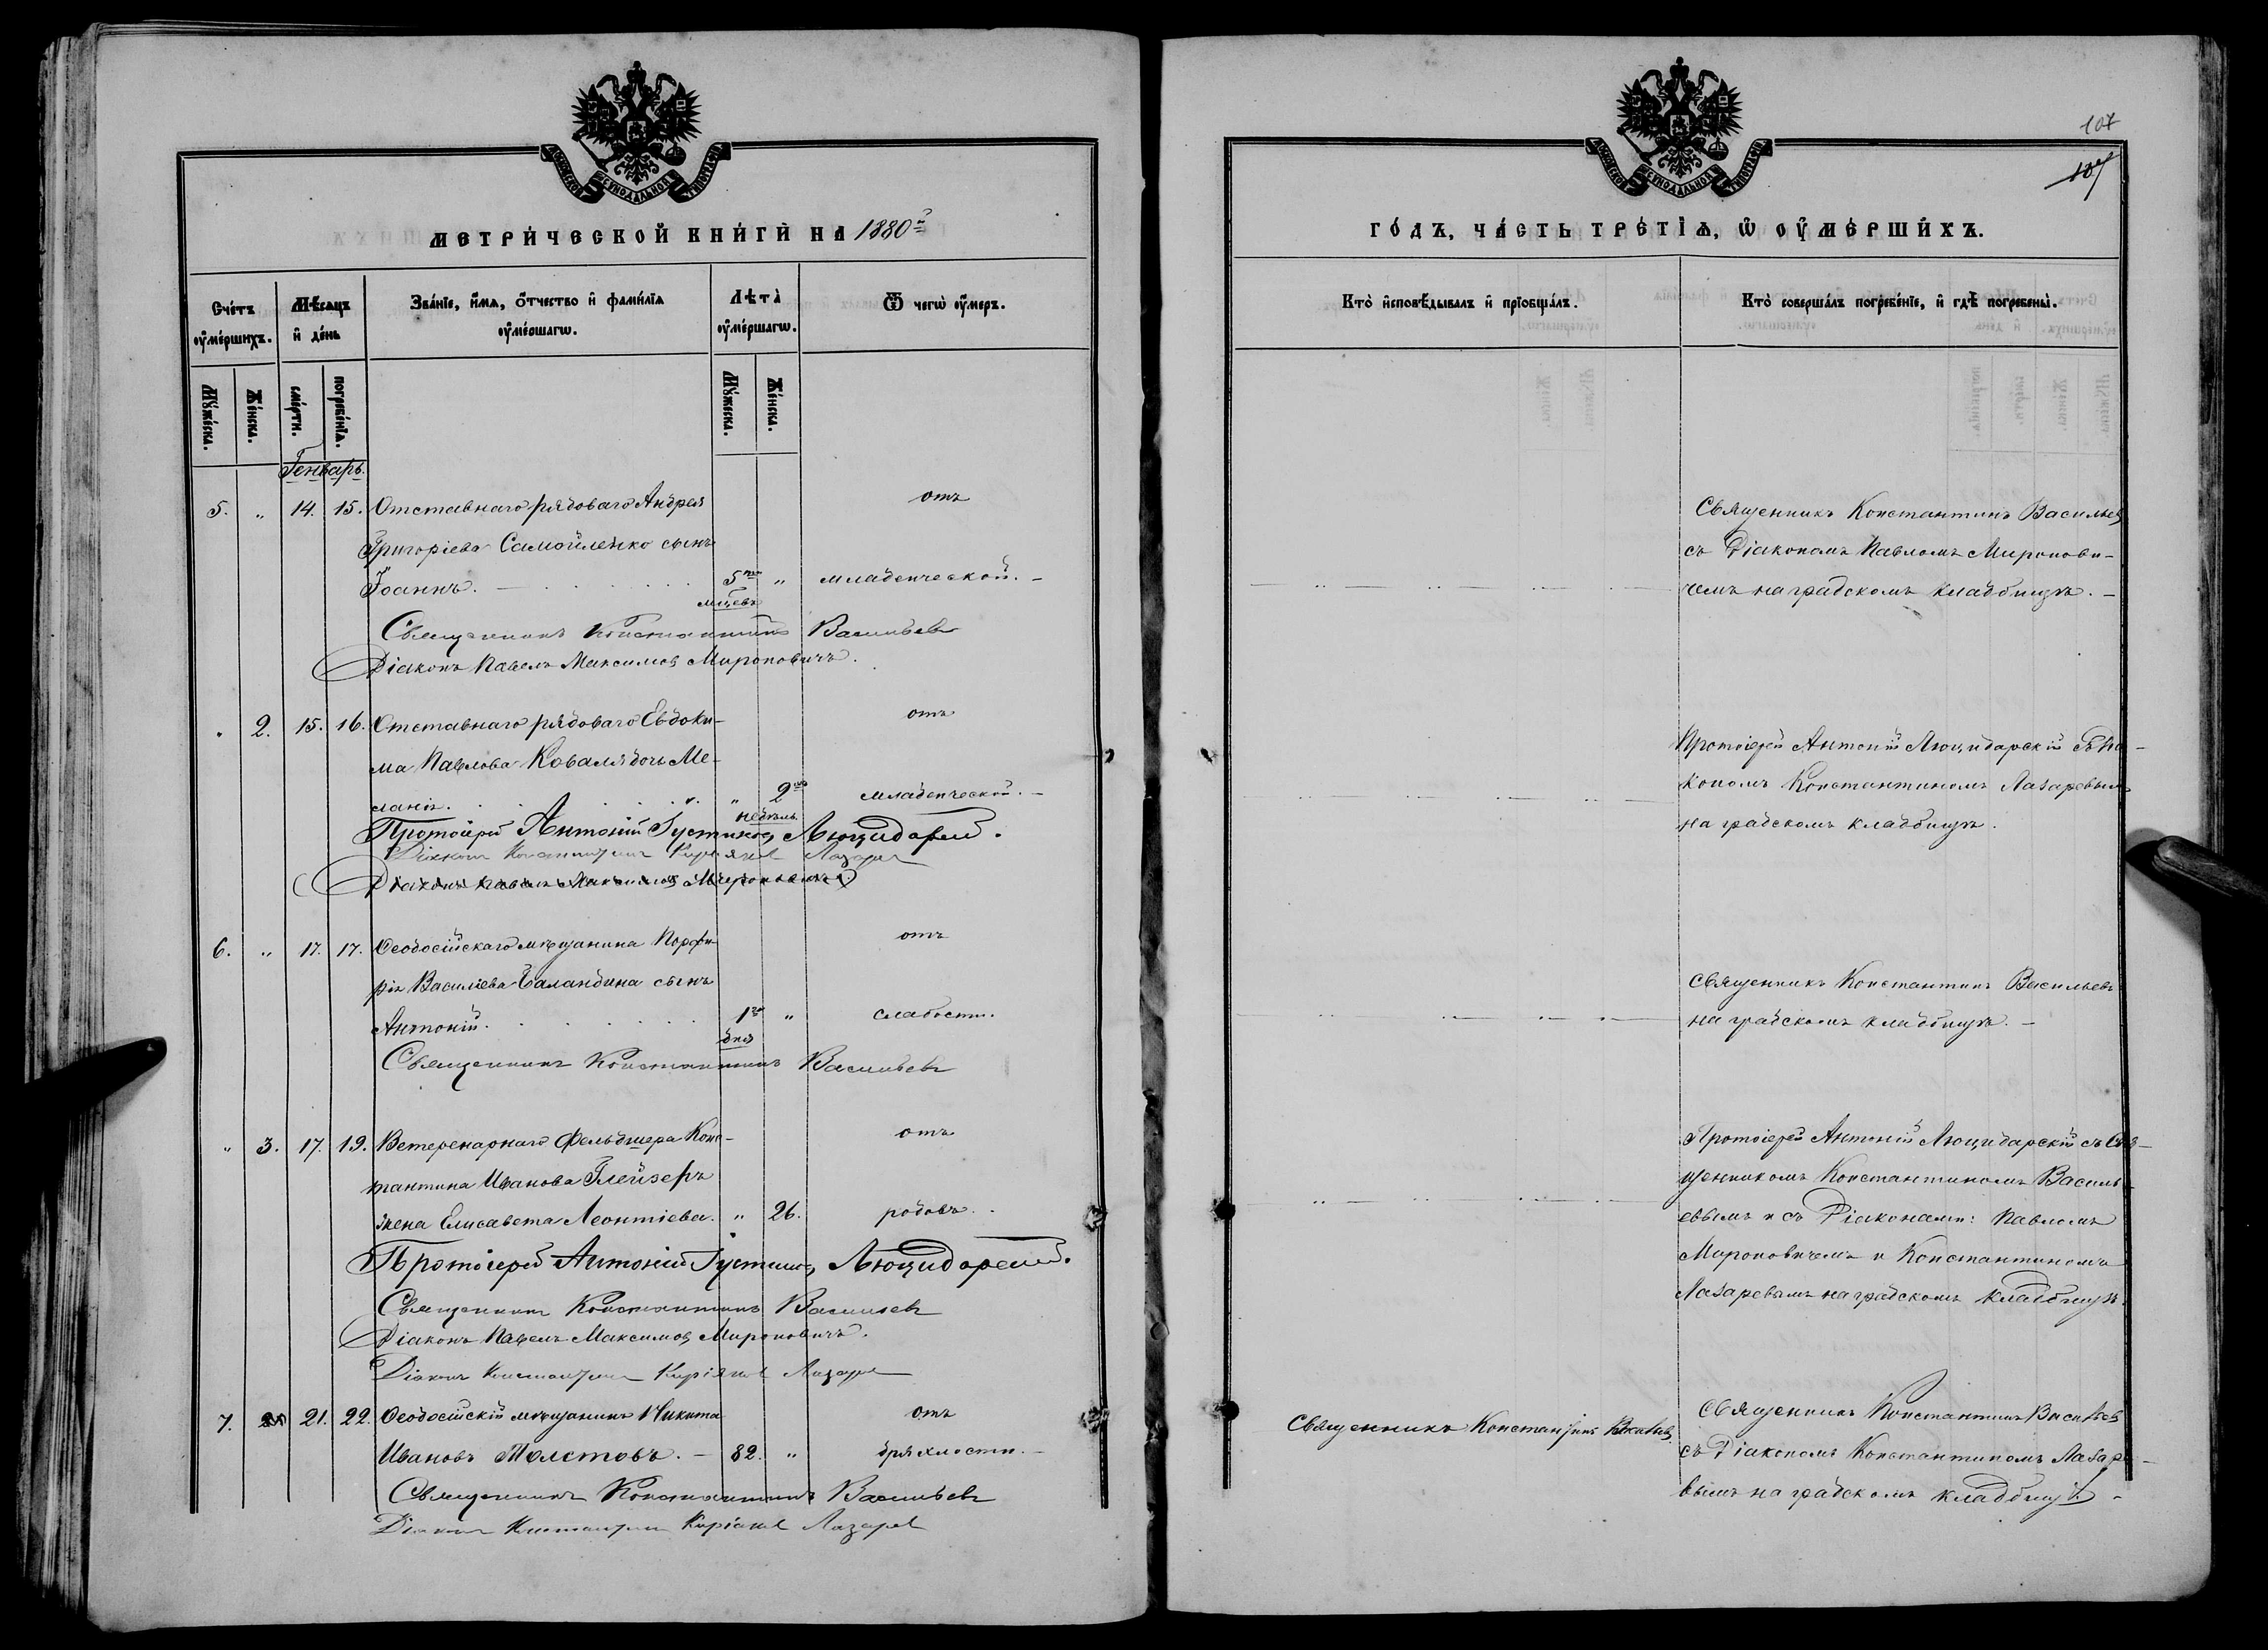 МОСКОВСКОЙ СѴНОДАЛЬНОЙ ТИПОГРАФІИ
МЕТРИ́ЧЕСКОЙ КНИ́ГИ НА 1880й
Сче́тъ ѹ҆ме́ршихъ.
Мѣ́сяцъ и҆ де́нь
Зва́нїе, и҆́мѧ, ѻ҆́тчество и҆ фамі́лїа ѹ҆ме́ршагѡ.
Лѣта̀ ѹ҆ме́ршагѡ.
Ѿ чегѡ̀ ѹ҆́меръ.
Мꙋ́жеска.
Же́нска.
сме́рти.
погребе́нїѧ.
Мꙋ́жеска.
Же́нска.
Генварь.
5. „ 14. 15. Отставнаго рядоваго Андрея отъ
Григоріева Самойленко сынъ
Іоаннъ. 5ти „ младенческой.
мцевъ
Священникъ Константинъ Васильевъ
Діаконъ Павелъ Максимовъ Мироновичъ.
„ 2. 15. 16. Отставнаго рядоваго Евдоки- отъ
ма Павлова Коваля дочь Ме-
ланія. „ 2хъ младенческой.
недѣль
Протоіерей Антоній Іустиновъ Люцидарскій.
Діаконъ Константинъ Киріаковъ Лазаревъ
Діаконъ Павелъ Максимовъ Мироновичъ
6. „ 17. 17. Ѳеодосійскаго мѣщанина Порфи- отъ
рія Василіева Баландина сынъ
Антоній. 1го „ слабости.
дня
Священникъ Константинъ Васильевъ
„ 3. 17. 19. Ветеренарнаго фельдшера Конс- отъ
тантина Иванова Глейзеръ
жена Елисавета Леонтіева. „ 26. родовъ.
Протоіерей Антоній Іустиновъ Люцидарскій.
Священникъ Константинъ Васильевъ
Діаконъ Павелъ Максимовъ Мироновичъ.
Діаконъ Константинъ Киріаковъ Лазаревъ
7. 21. 22. Ѳеодосійскій мѣщанинъ Никита отъ
Ивановъ Толстовъ. 82. „ дряхлости.
Священникъ Константинъ Васильевъ
Діаконъ Константинъ Киріаковъ Лазаревъ
107
107
МОСКОВСКОЙ СѴНОДАЛЬНОЙ ТИПОГРАФІИ
ГО́ДЪ, ЧА́СТЬ ТРЕ́ТЇѦ, Ѡ҆ ОУ҆МЕ́РШИХЪ.
Кто̀ и҆сповѣ́дывалъ и҆ прїобща́лъ.
Кто̀ соверша́лъ погребе́нїе, и҆ гдѣ̀ погребены̀.
Священникъ Константинъ Васильевъ
съ Діакономъ Павломъ Миронови-
чемъ на градскомъ кладбищѣ.
Протоіерей Антоній Люцидарскій съ Діа-
кономъ Константиномъ Лазаревымъ
на градскомъ кладбищѣ.
Священникъ Константинъ Васильевъ
на градскомъ кладбищѣ.
Протоіерей Антоній Люцидарскій съ Свя-
щенникомъ Константиномъ Василь-
евымъ и съ Діаконами: Павломъ
Мироновичемъ и Константиномъ
Лазаревымъ на градскомъ кладбищѣ.
Священникъ Константинъ Васильевъ
Священникъ Константинъ Васильевъ
съ Діакономъ Константиномъ Лазаре-
вымъ на градскомъ кладбищѣ.